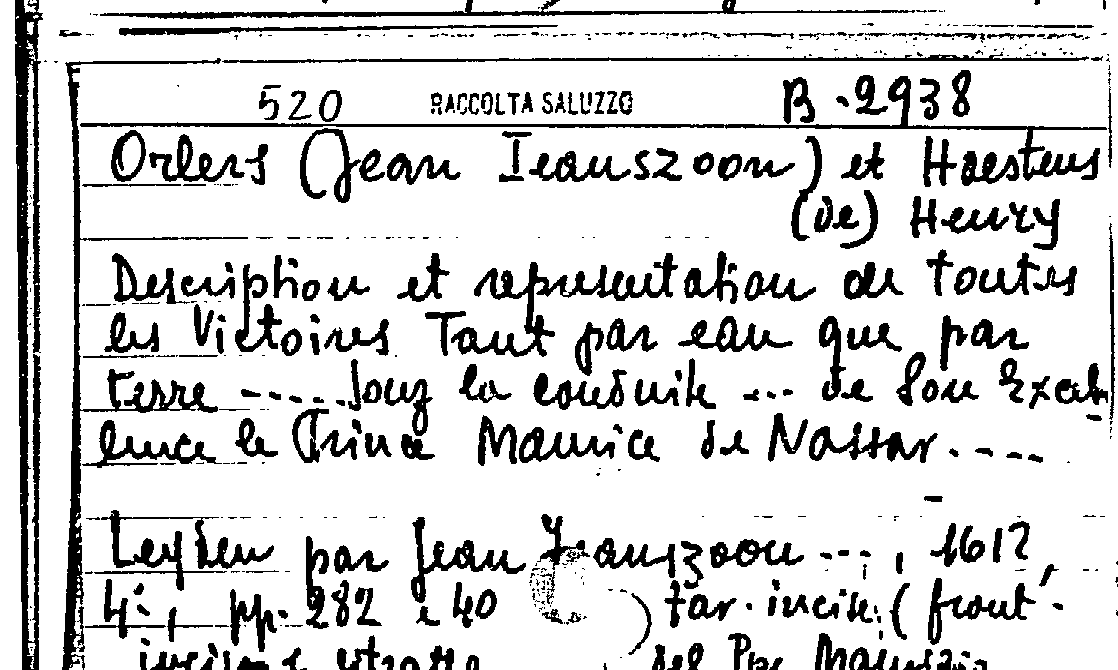 520 RACCOLTA SALUZZO B.2938
Orlers (Jean Ieanszoon) et Haestens
(de) Henry
Description et representation de toutes
les Victoires Tant par eau que par
terre ..... souz la conduite ... de Son Excel
lence le Prince Maurice de Nassar....
Leyden par Jean Jeanszoon ..., 1612,
4°, pp. 282 e 40 tav. incise (front.